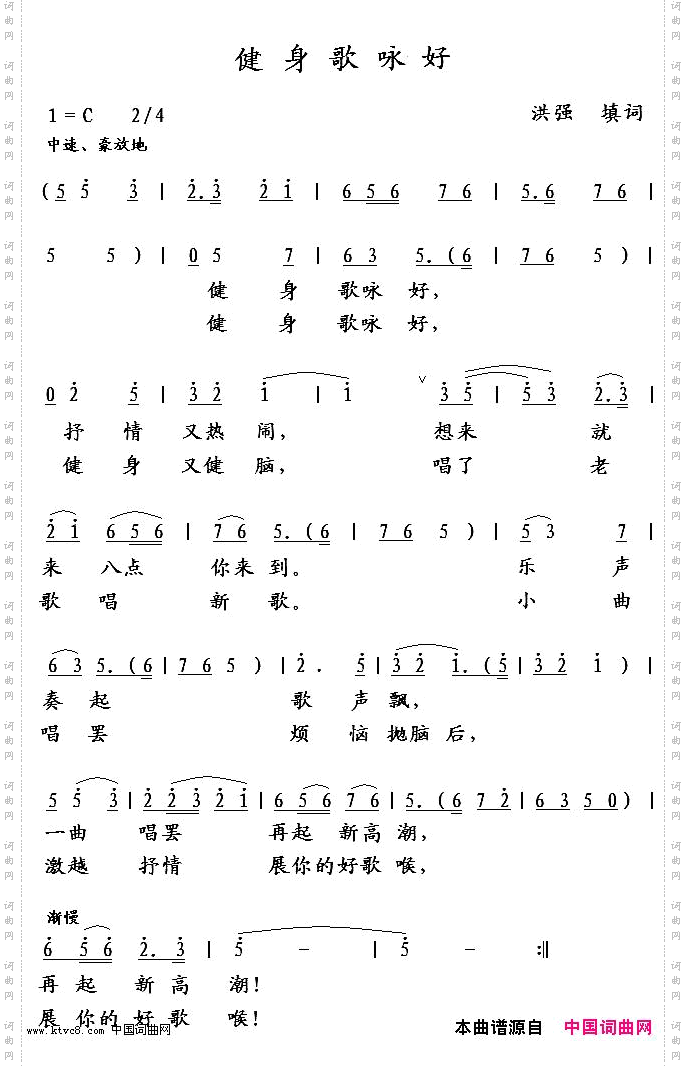 健身歌咏好
1=C 2/4
洪强 填词
中速、豪放地
(5 5 3 | 2.3 2 1 | 6 5 6 7 6 | 5.6 7 6 |
5 5 ) | 0 5 7 | 6 3 5.(6 | 7 6 5 ) |
健 身 歌咏 好,
健 身 歌咏 好,
0 2 5 | 3 2 1 | 1 ˅ 3 5 | 5 3 2.3 |
抒 情 又热 闹, 想来 就
健 身 又健 脑, 唱了 老
2 1 6 5 6 | 7 6 5.(6 | 7 6 5 ) | 5 3 7 |
来 八点 你来 到。 乐 声
歌 唱 新 歌。 小 曲
6 3 5.(6 | 7 6 5 ) | 2 . 5 | 3 2 1.(5 | 3 2 1 ) |
奏 起 歌 声 飘,
唱 罢 烦 恼 抛脑 后,
5 5 3 | 2 2 3 2 1 | 6 5 6 7 6 | 5.(6 7 2 | 6 3 5 0) |
一曲 唱罢 再起 新高 潮,
激越 抒情 展你的好歌 喉,
渐慢
6 5 6 2.3 | 5 – | 5 – :||
再 起 新 高 潮!
展 你的 好 歌 喉!
www.ktvc8.com 中国词曲网
本曲谱源自 中国词曲网
词曲网